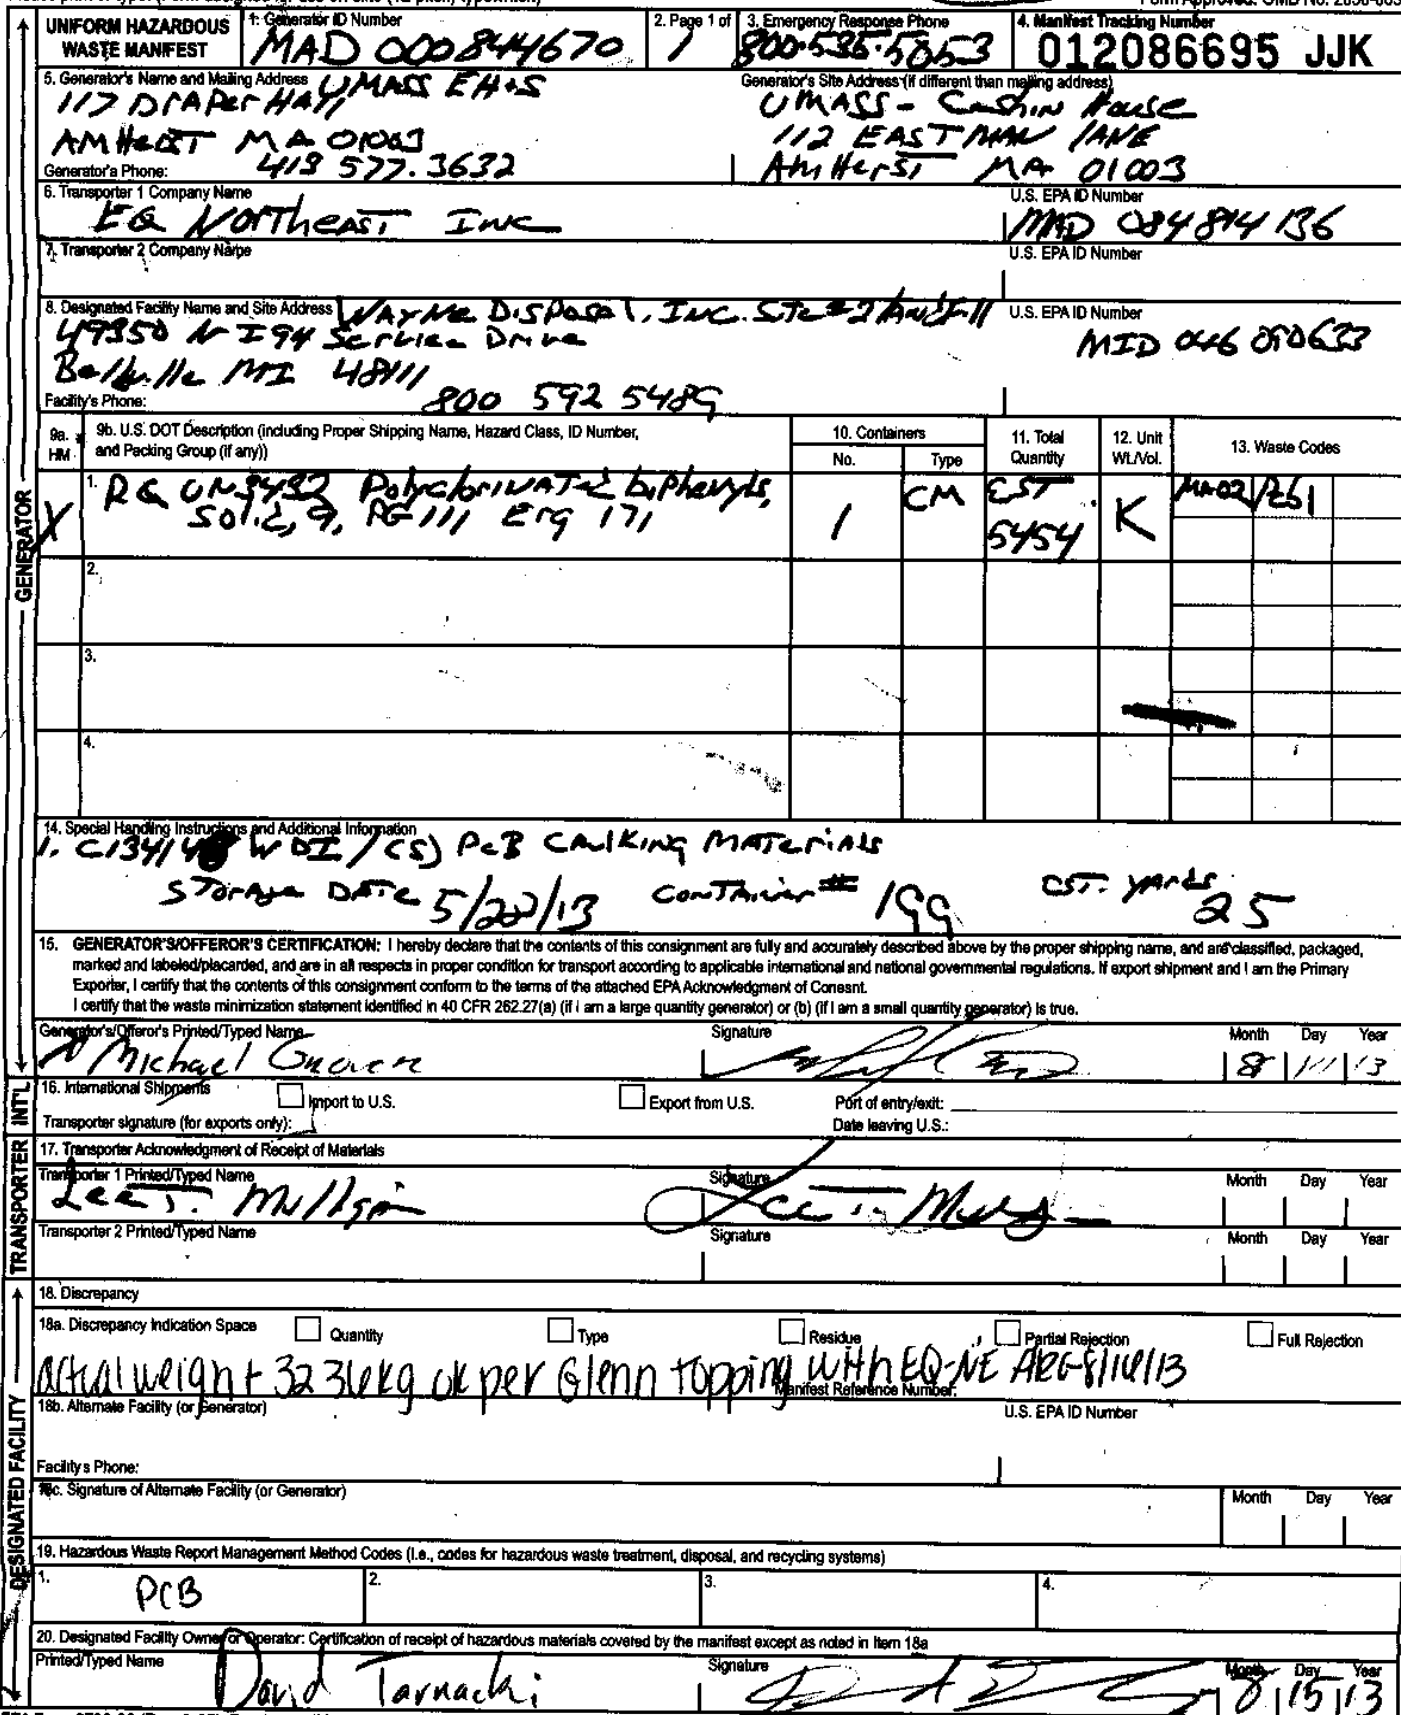 UNIFORM HAZARDOUS WASTE MANIFEST
1. Generator ID Number
MAD 000844670
2. Page 1 of
1
3. Emergency Response Phone
800-535-5053
4. Manifest Tracking Number
012086695 JJK
5. Generator's Name and Mailing Address UMASS EH+S
117 Draper Hall
AMHerst MA 01003
Generator's Phone: 413 577.3632
Generator's Site Address (if different than mailing address)
UMASS - Cashin House
112 EASTMAN LANE
AmHerst MA 01003
6. Transporter 1 Company Name
EQ Northeast Inc
U.S. EPA ID Number
MAD 084814136
7. Transporter 2 Company Name
U.S. EPA ID Number
8. Designated Facility Name and Site Address Wayne Disposal, Inc. Site #2 Landfill
49350 N I 94 Service Drive
Belleville MI 48111
Facility's Phone: 800 592 5489
U.S. EPA ID Number
MID 048 090633
9a. HM
9b. U.S. DOT Description (including Proper Shipping Name, Hazard Class, ID Number,
and Packing Group (if any))
10. Containers
No.
Type
11. Total Quantity
12. Unit Wt./Vol.
13. Waste Codes
X
1. RQ UN3432 Polychlorinated biphenyls,
Solid, 9, PG III Erg 171
1
CM
EST
5454
K
MA02
2.
3.
4.
14. Special Handling Instructions and Additional Information
1. C13414 WDI/(S) PCB CAULKING MATERIALS
Storage Date 5/ /13 Container # 199 EST. yards 25
15. GENERATOR'S/OFFEROR'S CERTIFICATION: I hereby declare that the contents of this consignment are fully and accurately described above by the proper shipping name, and are classified, packaged,
marked and labeled/placarded, and are in all respects in proper condition for transport according to applicable international and national governmental regulations. If export shipment and I am the Primary
Exporter, I certify that the contents of this consignment conform to the terms of the attached EPA Acknowledgment of Consent.
I certify that the waste minimization statement identified in 40 CFR 262.27(a) (if I am a large quantity generator) or (b) (if I am a small quantity generator) is true.
Generator's/Offeror's Printed/Typed Name
Signature
Month Day Year
Michael
8 11 13
16. International Shipments
Import to U.S.
Export from U.S.
Port of entry/exit:
Transporter signature (for exports only):
Date leaving U.S.:
17. Transporter Acknowledgment of Receipt of Materials
Transporter 1 Printed/Typed Name
Signature
Month Day Year
Lee T. Milligan
Transporter 2 Printed/Typed Name
Signature
Month Day Year
18. Discrepancy
18a. Discrepancy Indication Space
Quantity
Type
Residue
Partial Rejection
Full Rejection
actual weight 3236kg ok per Glenn Topping with EQ-NE ARG 8/16/13
Manifest Reference Number:
18b. Alternate Facility (or Generator)
U.S. EPA ID Number
Facility's Phone:
18c. Signature of Alternate Facility (or Generator)
Month Day Year
19. Hazardous Waste Report Management Method Codes (i.e., codes for hazardous waste treatment, disposal, and recycling systems)
1. PCB
2.
3.
4.
20. Designated Facility Owner or Operator: Certification of receipt of hazardous materials covered by the manifest except as noted in Item 18a
Printed/Typed Name
Signature
Month Day Year
David Tarnacki
8 15 13
GENERATOR
INT'L
TRANSPORTER
DESIGNATED FACILITY